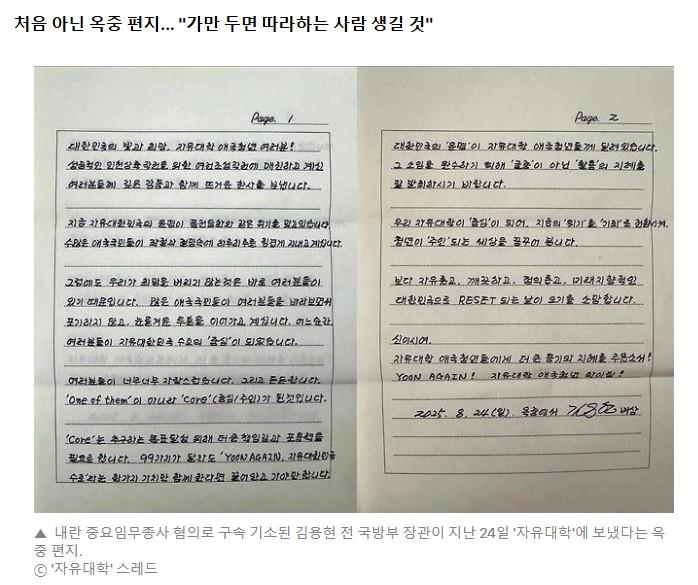 처음 아닌 옥중 편지... "가만 두면 따라하는 사람 생길 것"
Page. 1
대한민국의 빛과 희망, 자유대학 애국청년 여러분!
성공적인 인천상륙작전을 위한 여건조성작전에 매진하고 계신
여러분들께 깊은 감동과 함께 뜨거운 찬사를 보냅니다.
지금 자유대한민국의 운명이 풍전등화와 같은 위기를 맞고있습니다.
수많은 애국국민들이 좌절과 절망속에 하루하루를 힘겹게 지내고계십니다.
그럼에도 우리가 희망을 버리지 않는것은 바로 여러분들이
있기 때문입니다. 많은 애국국민들이 여러분들을 바라보면서
포기하지 않고, 눈물겨운 투쟁을 이어가고 계십니다. 어느순간,
여러분들이 자유대한민국 수호의 '중심'이 되었습니다.
여러분들이 너무너무 자랑스럽습니다. 그리고 든든합니다.
'One of them'이 아니라 'Core'(중심/주인)가 된것입니다.
'Core'는 추구하는 목표달성 위해 더 큰 책임감과 포용력을
필요로 합니다. 99가지가 달라도 'YOON AGAIN, 자유대한민국
수호'라는 한가지 가치만 함께 한다면 끌어안고 가야만 합니다.
Page. 2
대한민국의 '운명'이 자유대학 애국청년들께 달려있습니다.
그 소임을 완수하기 위해 이 아닌 의 지혜를
잘 발휘하시기 바랍니다.
우리 자유대학이 '중심'이 되어, 지금의 '위기'를 '기회'로 전환시켜,
청년이 '주인'되는 세상을 꿈꾸어 봅니다.
보다 자유롭고, 깨끗하고, 정의롭고, 미래지향적인
대한민국으로 RESET 되는 날이 오기를 소망합니다.
신이시여.
자유대학 애국청년들에게 더 큰 용기와 지혜를 주옵소서!
YOON AGAIN! 자유대학 애국청년 화이팅!
2025. 8. 24(일). 옥중에서 김용현 배상
▲ 내란 중요임무종사 혐의로 구속 기소된 김용현 전 국방부 장관이 지난 24일 '자유대학'에 보냈다는 옥
중 편지.
© '자유대학' 스레드